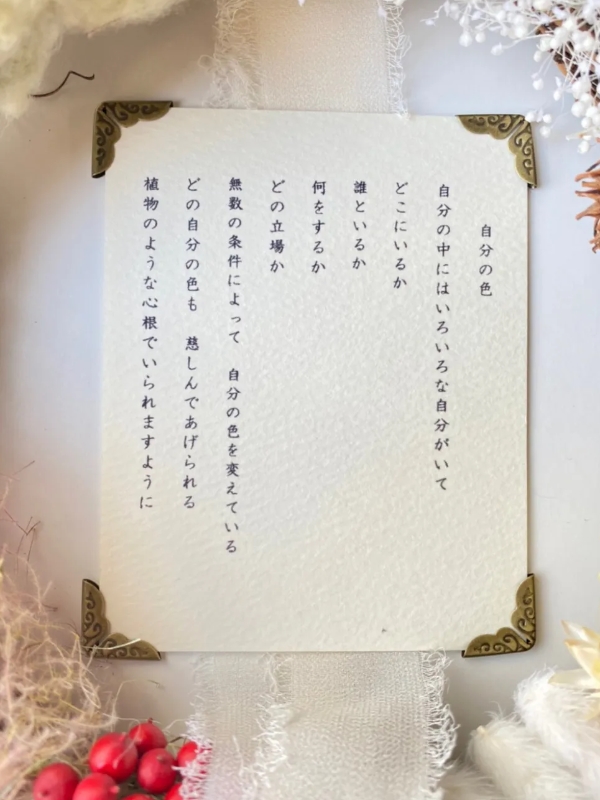 自分の色
自分の中にはいろいろな自分がいて
どこにいるか
誰といるか
何をするか
どの立場か
無数の条件によって　自分の色を変えている
どの自分の色も　慈しんであげられる
植物のような心根でいられますように